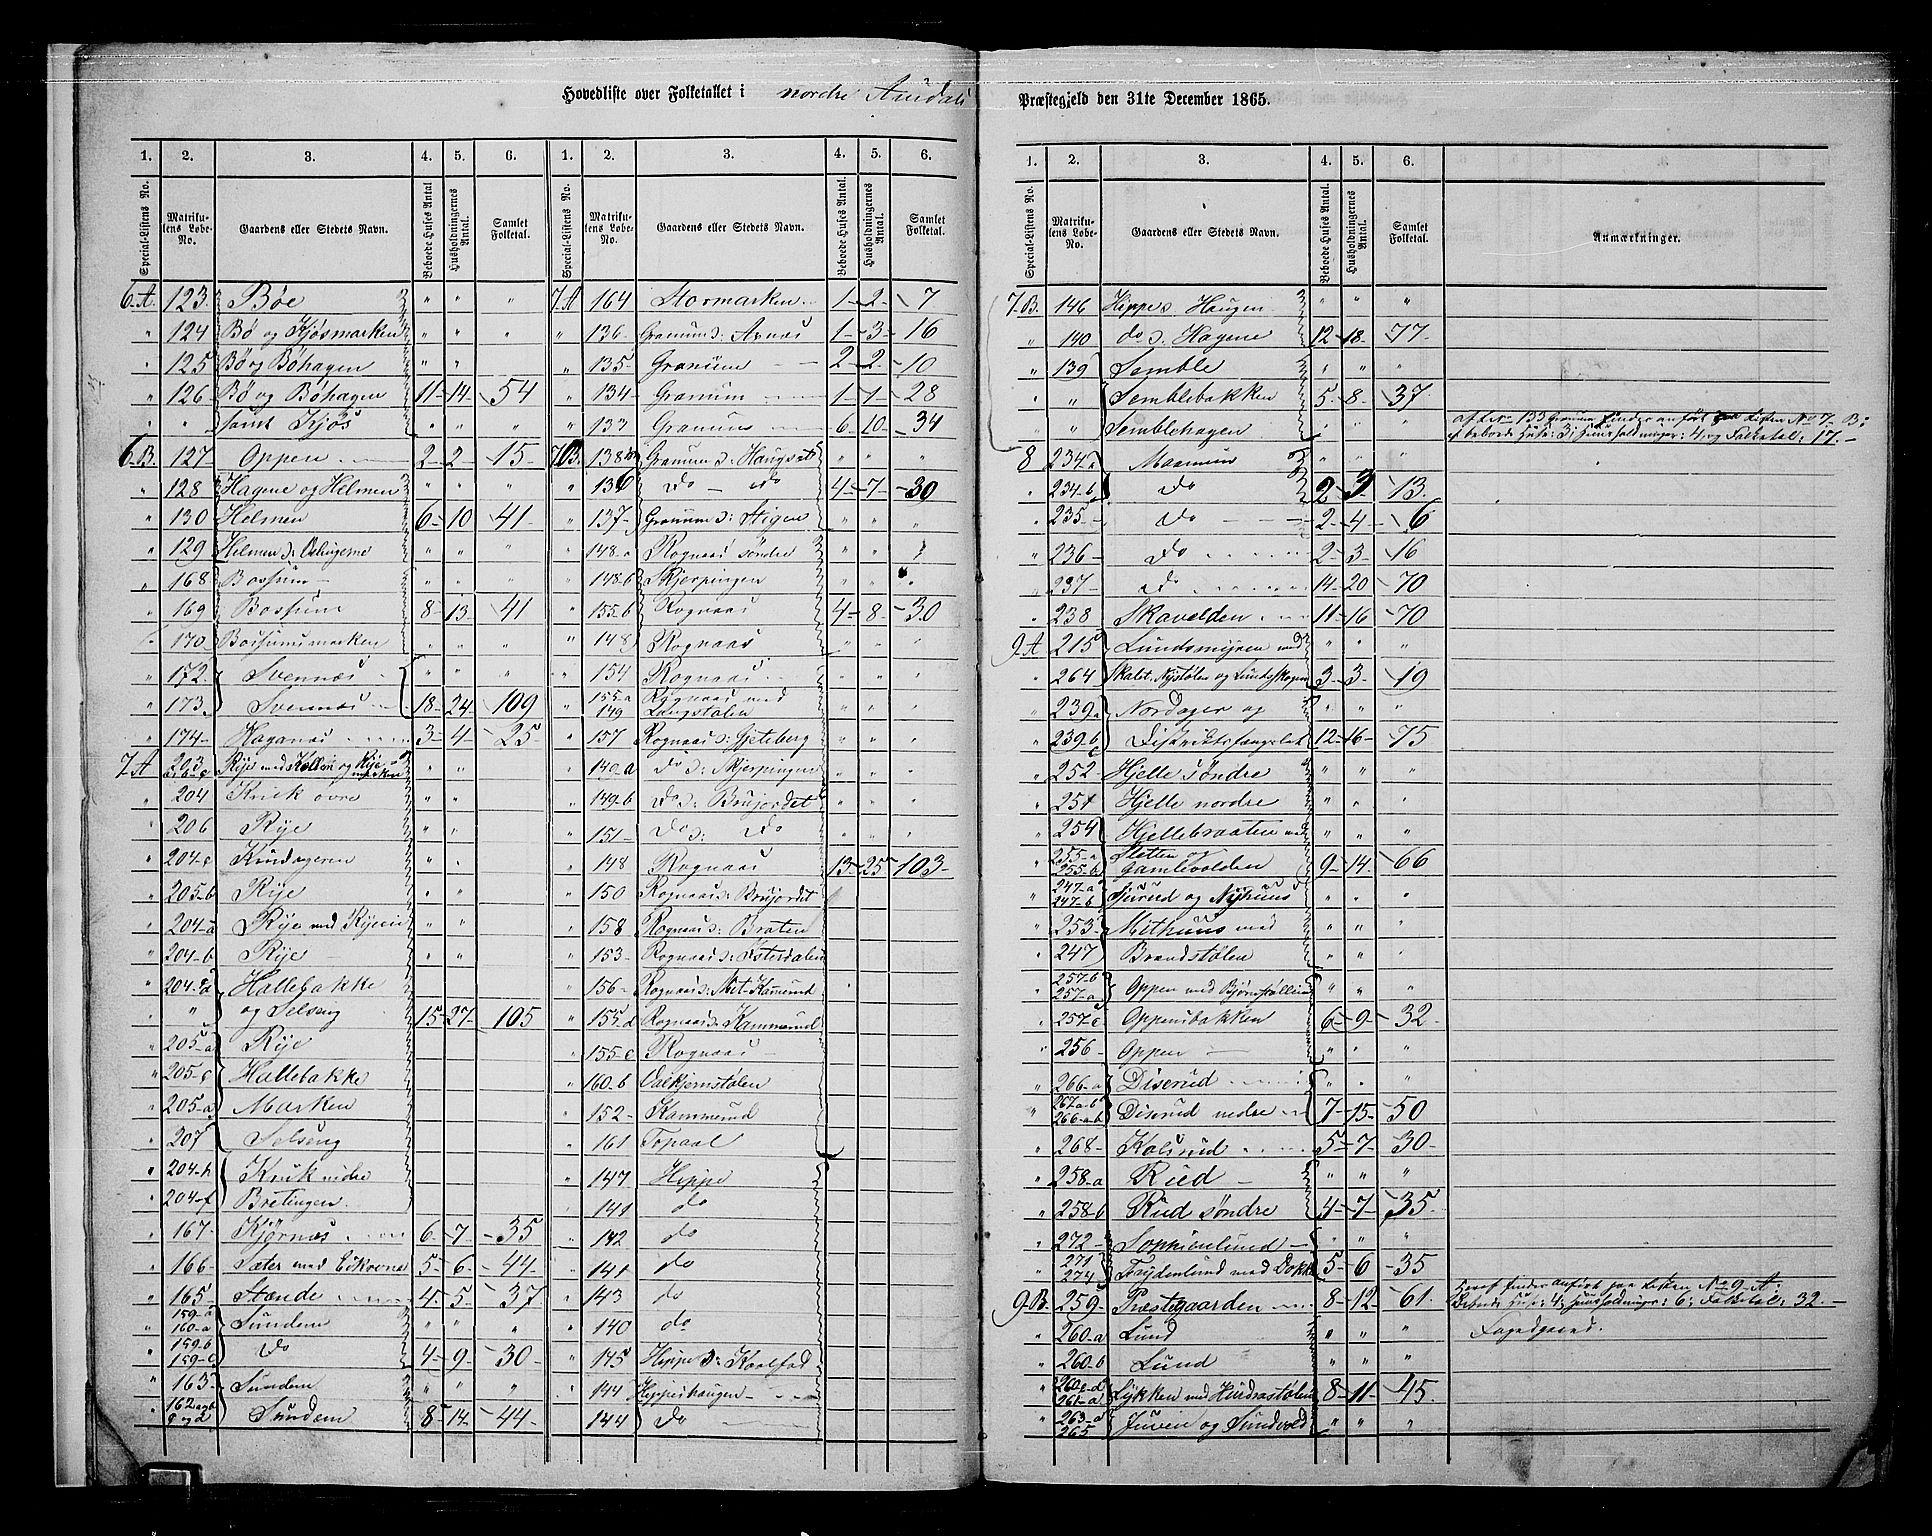 Hovedliste over Folketallet i nordre Aurdals Præstegjeld den 31te December 1865.
1. 2. 3. 4. 5. 6. 1. 2. 3. 4. 5. 6.
Special-Listens No. Matrikulens Løbe-No. Gaardens eller Stedets Navn. Beboede Huses Antal. Husholdningernes Antal. Samlet Folketal. Special-Listens No. Matrikulens Løbe-No. Gaardens eller Stedets Navn. Beboede Huses Antal. Husholdningernes Antal. Samlet Folketal.
6.A. 123. Bøe " " "
" 124 Bø og Kjøsmarken " " "
" 125 Bø og Bøhagen " "
" 126 Bø og Bøhagen 11 14 54
" " samt Kjøs
6.B. 127 Oppen 2 2 15
" 128 Hagene og Helmen " " "
" 130 Helmen 6 10 41
" 129 Helmen " " "
" 168 Bossum " " "
" 169 Bossum 8 13 41
" 170 Bossumsmarken " " "
" 172 Svennæs " " "
" 173 Svennæs 18 24 109
" 174 Haganæs 3 4 25
7.A 203 Rye med Kollen og Rye " "
" 204 Kruk øvre " "
" 206 Rye " "
" 204-e Kindageren " "
" 205-b Rye " "
" 204-a Rye med Ryeeie " "
" 204-b Rye " "
" 204-d Hallebakke
" " og Selseng 15 27 105
" 205-a Rye
" 205-c Hallebakke
" 205-a Marken
" 207 Selseng
" 204-h Kruk nedre
" 204-f Bretingen
" 167 Kjørnæs 6 7 35
" 166 Sæter med Eikovnæs 5 6 44
" 165 Stænde 4 5 37
" 159-a 160-a Sundem " " "
" 159-b 159-c Do 4 9 30
" 163 Sundem " " "
" 162 a og b c og d Sundem 8 14 44
7.A 164 Stormarken 1 2 7
" 136 Granum Arnæs 1 3 16
" 135 Granum 2 2 10
" 134 Granum 1 1 28
" 133 Granum 6 10 34
7.B. 138 Granum Haugset " " "
" 136 Do Do 4 7 30
" 137 Granum Stigen " " "
" 148-a Rognaas søndre " "
" 148-b Skjerpingen " "
" 155-b Rognaas 4 8 30
" 148 Rognaas " " "
" 154 Rognaas " " "
" 155-a 149 Rognaas med Langstølen " " "
" 157 Rognaas Gjeteberg " " "
" 140-a Do Skjerpingen " " "
" 149-b Do Brujordet " " "
" 151 Do Do " " "
" 148 Rognaas 13 25 103
" 150 Rognaas Brujordet
" 158 Rognaas Braten
" 153 Rognaas Østerdalen
" 156 Rognaas Kamerud
" 155-d Rognaas Kammerud
" 155-c Rognaas
" 160-b Valkjernstølen
" 152 Kammerud
" 161 Fopaal
" 147 Hippe
" 141 do
" 142 do
" 141 do
" 143 do
" 140 do
" 145 Hippe Kaalfad
" 144 Hippehaugen
" 144 Do
1. 2. 3. 4. 5. 6.
Special-Listens No. Matrikulens Løbe-No. Gaardens eller Stedets Navn. Beboede Huses Antal. Husholdningernes Antal. Samlet Folketal. Anmærkninger.
7.B. 146 Hippes Haugen " " "
" 140 do Hagene 12 18 77
" 139 Semble " " "
" " Semblebakken 5 8 37
" Semblehagen " " "
af No 133 Granum findes anført paa Listen No 7. B:
beboede Huse: 3; Husholdninger: 4 og Folketal: 17.
8 234-a Maamun " " "
" 234-b Do 2 3 13
" 235 Do 2 4 6
" 236 Do 2 3 16
" 237 Do 14 20 70
" 238 Skavelden 11 16 70
9.A 215 Lundsmyren med " " "
" 264 Skalit. Nystølen og Lundsskogen 3 3 19
" 239-a Nordager og " " "
" 239-b c Distriktsfængslet 12 16 75
" 252 Hjelle søndre " " "
" 251 Hjelle nordre " " "
" 254 Hjellebraaten med " " "
" 255-a 255-b Sletten og Gamlevolden 9 14 66
" 247-a 247-b Furud og Nyhuus " " "
" 253 Mithuus med " " "
" 247 Brandstølen " " "
" 257-b 257-a Oppen med Bjørnstøllien " " "
" 257-c Oppensbakken 6 9 32
" 256 Oppen " " "
" 266-a Diserud " " "
" 267-a-b 266-a-b Diserud nedre 7 15 50
" 268 Kolsrud 5 7 30
" 258-a Rud " " "
" 258-b Rud søndre 4 7 35
" 272 Sophienlund " " "
" 271 274 Frydenlund med Dokke 5 6 35
9.B. 259 Præstegaarden 8 12 61
Heraf findes anført paa Listen No 9. A.
Beboede Huse: 4; Husholdninger: 6; Folketal: 32.
" 260-a Lund " " "
" 260-b Lund " " "
" 260-c-d 261-a Lykken med Hindrastølen 8 11 45
" 263-a 265 Juven og Sundvold " " "